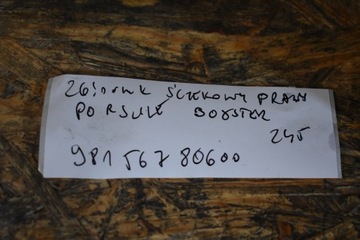 ZBIORNIK ŚCIEKOWY PRAWY
PORSULE BOXSTER
245
981 567 80600